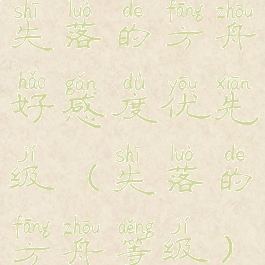 shī luò de fāng zhōu
失落的方舟
hǎo gǎn dù yōu xiān
好感度优先
jí shī luò de
级（失落的
fāng zhōu děng jí
方舟等级）